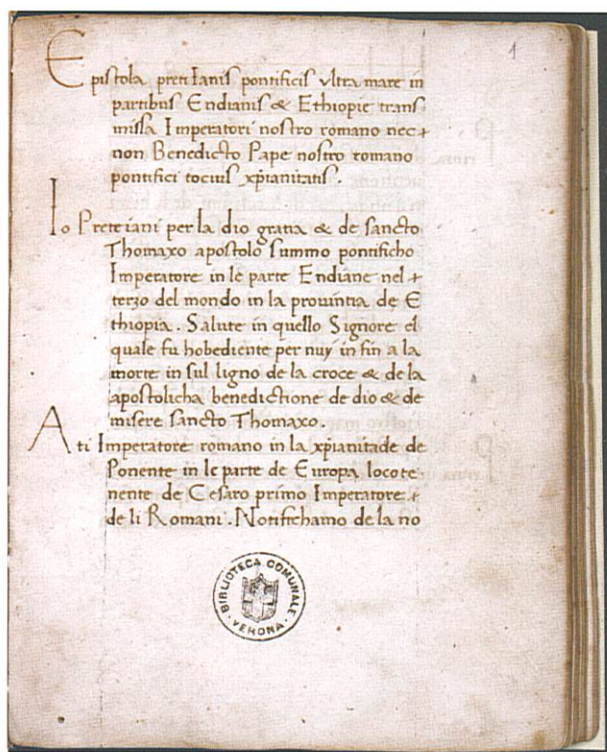 1
Epistola preti Ianis pontificis vltra mare in
partibus Endianis & Ethiopie trans
missa Imperatori nostro romano nec +
non Benedicto Pape nostro romano
pontifici tocius xp̄ianitatis.
Io Prete iani per la dio gratia & de sancto
Thomaxo apostolo summo pontificho
Imperatore in le parte Endiane nel +
terzo del mondo in la prouintia de E
thiopia. Salute in quello Signore el
quale fu hobediente per nuy in fin a la
morte in sul ligno de la croce & de la
apostolicha benedictione de dio & de
misere sancto Thomaxo.
A ti Imperatore romano in la xp̄ianitade de
Ponente in le parte de Europa locote
nente de Cesaro primo Imperatore +
de li Romani. Notifichamo de la no
BIBLIOTECA COMUNALE
· VERONA ·